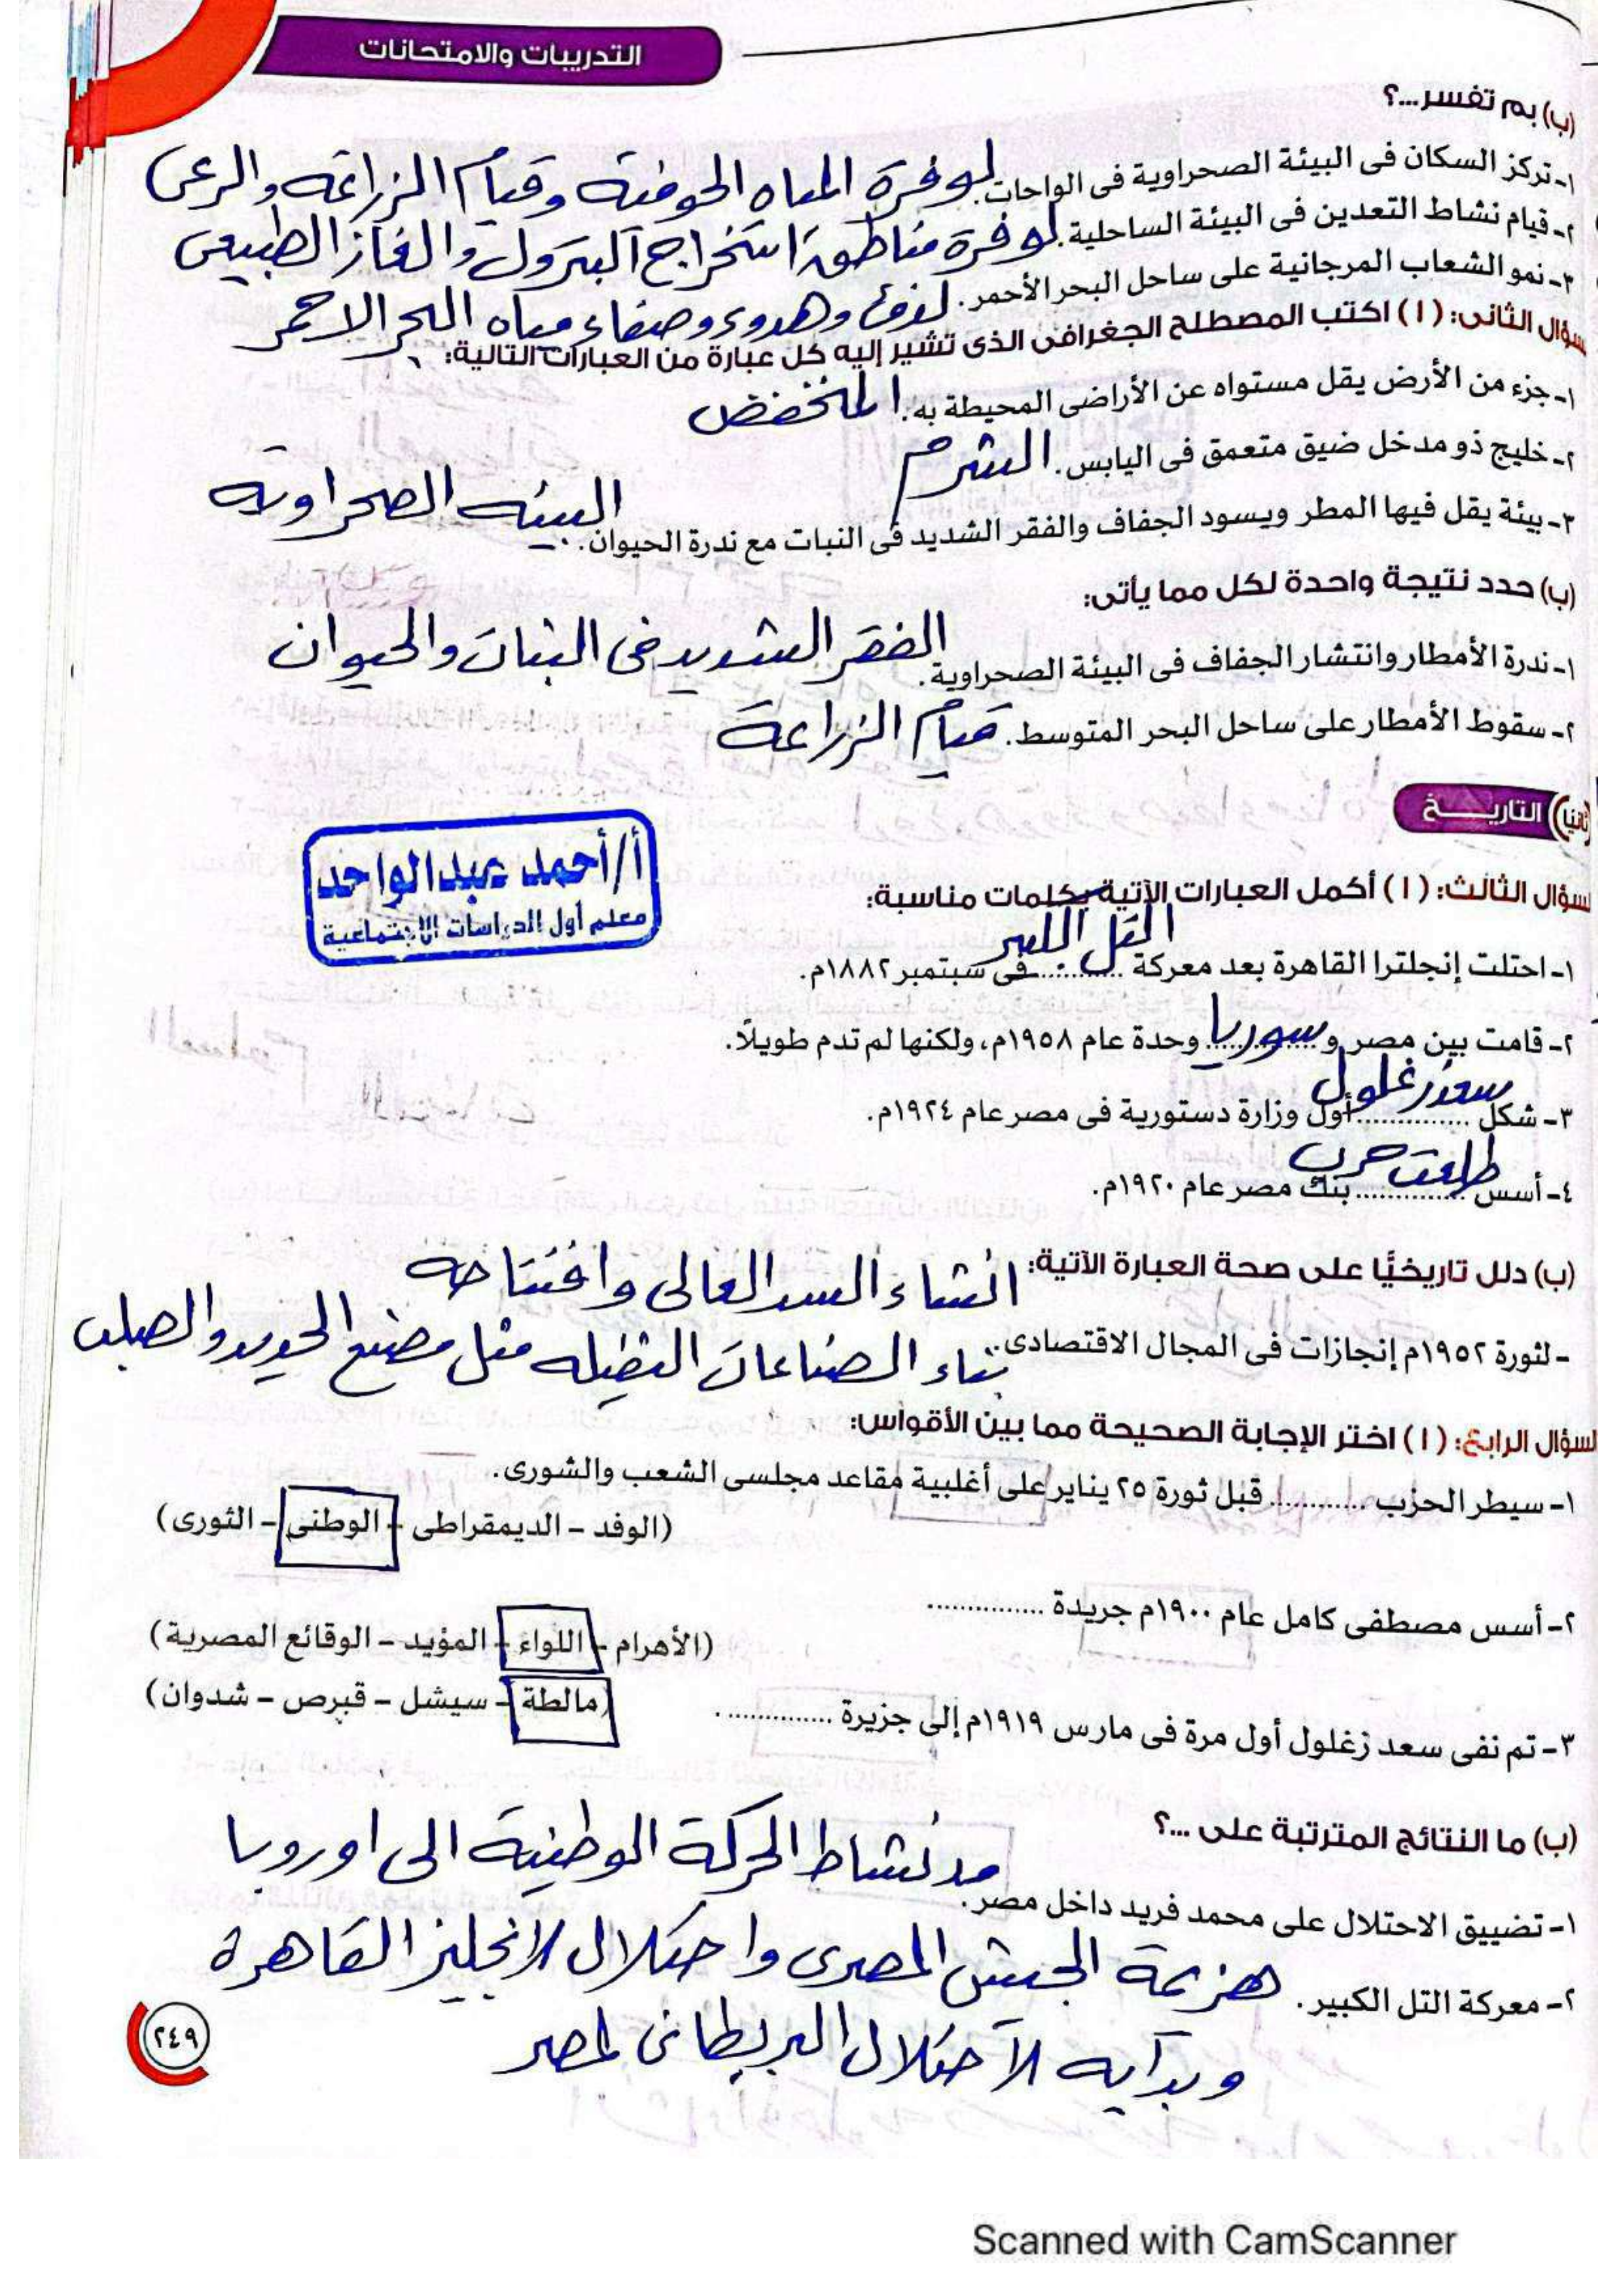 التدريبات والامتحانات
(ب) بم تفسر...؟
١- تركز السكان فى البيئة الصحراوية فى الواحات. لوفرة المياه الجوفية وقيام الزراعة والرعى
٢- قيام نشاط التعدين فى البيئة الساحلية. لوفرة مناطق استخراج البترول والغاز الطبيعى
٣- نمو الشعاب المرجانية على ساحل البحر الأحمر. لدفئ وهدوء وصفاء مياه البحر الاحمر
سؤال الثانى: (١) اكتب المصطلح الجغرافى الذى تشير إليه كل عبارة من العبارات التالية:
١- جزء من الأرض يقل مستواه عن الأراضى المحيطة به. المنخفض
٢- خليج ذو مدخل ضيق متعمق فى اليابس. الشرم
٣- بيئة يقل فيها المطر ويسود الجفاف والفقر الشديد فى النبات مع ندرة الحيوان. البيئه الصحراوية
(ب) حدد نتيجة واحدة لكل مما يأتى:
١- ندرة الأمطار وانتشار الجفاف فى البيئة الصحراوية. الفقر الشديد فى النبات والحيوان
٢- سقوط الأمطار على ساحل البحر المتوسط. قيام الزراعة
ثانيا) التاريــخ
أ/أحمد عبدالواحد
معلم أول الدراسات الاجتماعية
لسؤال الثالث: (١) أكمل العبارات الآتية بكلمات مناسبة:
١- احتلت إنجلترا القاهرة بعد معركة التل الكبير فى سبتمبر ١٨٨٢م.
٢- قامت بين مصر و سوريا وحدة عام ١٩٥٨م، ولكنها لم تدم طويلًا.
٣- شكل سعد زغلول أول وزارة دستورية فى مصر عام ١٩٢٤م.
٤- أسس طلعت حرب بنك مصر عام ١٩٢٠م.
(ب) دلل تاريخيًا على صحة العبارة الآتية: انشاء السد العالى وافتتاحه
- لثورة ١٩٥٢م إنجازات فى المجال الاقتصادى. بناء الصناعات الثقيله مثل مصنع الحديد والصلب
لسؤال الرابع: (١) اختر الإجابة الصحيحة مما بين الأقواس:
١- سيطر الحزب ............ قبل ثورة ٢٥ يناير على أغلبية مقاعد مجلسى الشعب والشورى.
(الوفد - الديمقراطى - الوطنى - الثورى)
٢- أسس مصطفى كامل عام ١٩٠٠م جريدة ...............
(الأهرام - اللواء - المؤيد - الوقائع المصرية)
٣- تم نفى سعد زغلول أول مرة فى مارس ١٩١٩م إلى جزيرة ...............
(مالطة - سيشل - قبرص - شدوان)
(ب) ما النتائج المترتبة على ...؟
١- تضييق الاحتلال على محمد فريد داخل مصر. مد نشاط الحركة الوطنية الى اوروبا
٢- معركة التل الكبير. هزيمة الجيش المصرى واحتلال الانجليز القاهرة
وبدايه الاحتلال البريطانى لمصر
٢٤٩
Scanned with CamScanner